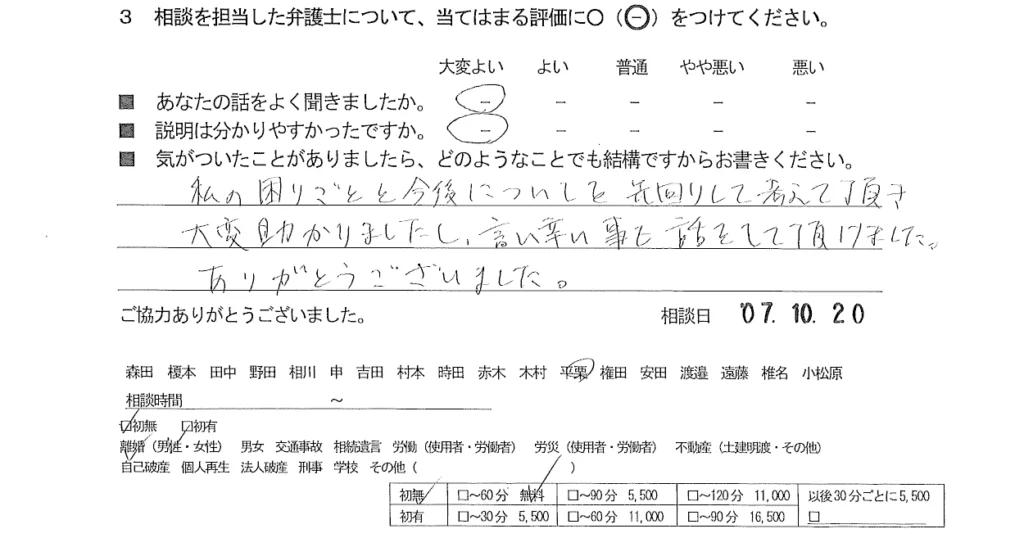 3 相談を担当した弁護士について、当てはまる評価に○（㊀）をつけてください。
大変よい よい 普通 やや悪い 悪い
■ あなたの話をよく聞きましたか。 － － － － －
■ 説明は分かりやすかったですか。 － － － － －
■ 気がついたことがありましたら、どのようなことでも結構ですからお書きください。
私の困りごとと今後についてを先回りして考えて頂き
大変助かりましたし、言い辛い事も話をして頂けました。
ありがとうございました。
ご協力ありがとうございました。 相談日 '07.10.20
森田 榎本 田中 野田 相川 申 吉田 村本 時田 赤木 木村 平栗 権田 安田 渡邉 遠藤 椎名 小松原
相談時間 ～
□初無 □初有
離婚（男性・女性） 男女 交通事故 相続遺言 労働（使用者・労働者） 労災（使用者・労働者） 不動産（土建明渡・その他）
自己破産 個人再生 法人破産 刑事 学校 その他（ ）
初無 □～60分 無料 □～90分 5,500 □～120分 11,000 以後30分ごとに5,500
初有 □～30分 5,500 □～60分 11,000 □～90分 16,500 □